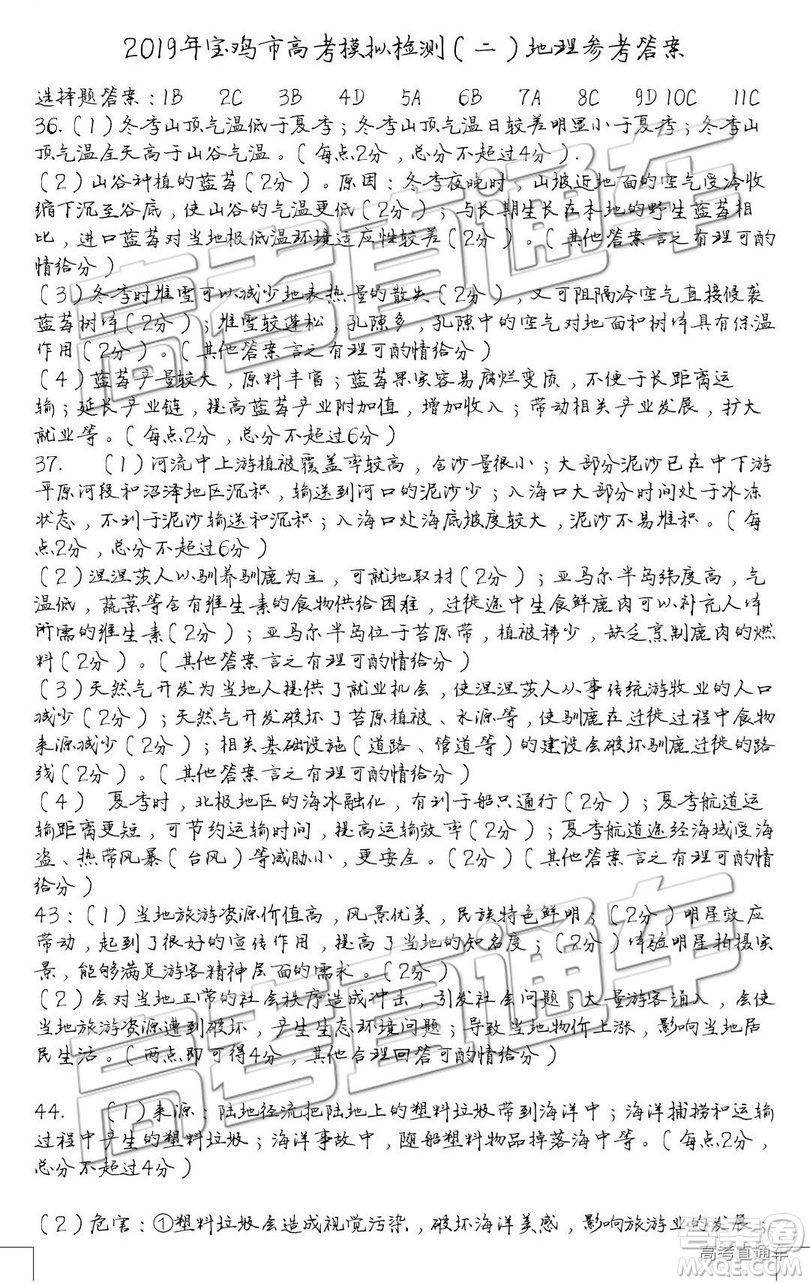 2019年宝鸡市高考模拟检测(二)地理参考答案
选择题答案:1B 2C 3B 4D 5A 6B 7A 8C 9D 10C 11C
36.(1)冬季山顶气温低于夏季;冬季山顶气温日较差明显小于夏季;冬季山
顶气温全天高于山谷气温。(每点2分,总分不超过4分).
(2)山谷种植的蓝莓(2分)。原因:冬季夜晚时,山坡近地面的空气受冷收
缩下沉至谷底,使山谷的气温更低(2分);与长期生长在本地的野生蓝莓相
比,进口蓝莓对当地极低温环境适应性较差(2分)。(其他答案言之有理可酌
情给分)
(3)冬季时堆雪可以减少地表热量的散失(2分),又可阻隔冷空气直接侵袭
蓝莓树体(2分);堆雪较蓬松,孔隙多,孔隙中的空气对地面和树体具有保温
作用(2分)。(其他答案言之有理可酌情给分)
(4)蓝莓产量较大,原料丰富;蓝莓果实容易腐烂变质,不便于长距离运
输;延长产业链,提高蓝莓产业附加值,增加收入;带动相关产业发展,扩大
就业等。(每点2分,总分不超过6分)
37. (1)河流中上游植被覆盖率较高,含沙量很小;大部分泥沙已在中下游
平原河段和沼泽地区沉积,输送到河口的泥沙少;入海口大部分时间处于冰冻
状态,不利于泥沙输送和沉积;入海口处海底坡度较大,泥沙不易堆积。(每
点2分,总分不超过6分)
(2)涅涅茨人以驯养驯鹿为主,可就地取材(2分);亚马尔半岛纬度高,气
温低,蔬菜等含有维生素的食物供给困难,迁徙途中生食鲜鹿肉可以补充人体
所需的维生素(2分);亚马尔半岛位于苔原带,植被稀少,缺乏烹制鹿肉的燃
料(2分)。(其他答案言之有理可酌情给分)
(3)天然气开发为当地人提供了就业机会,使涅涅茨人从事传统游牧业的人口
减少(2分);天然气开发破坏了苔原植被、水源等,使驯鹿在迁徙过程中食物
来源减少(2分);相关基础设施(道路、管道等)的建设会破坏驯鹿迁徙的路
线(2分)。(其他答案言之有理可酌情给分)
(4) 夏季时,北极地区的海冰融化,有利于船只通行(2分);夏季航道运
输距离更短,可节约运输时间,提高运输效率(2分);夏季航道途经海域受海
盗、热带风暴(台风)等威胁小,更安全。(2分)(其他答案言之有理可酌情
给分)
43:(1)当地旅游资源价值高,风景优美,民族特色鲜明;(2分)明星效应
带动,起到了很好的宣传作用,提高了当地的知名度;(2分)体验明星拍摄实
景,能够满足游客精神层面的需求。(2分)
(2)会对当地正常的社会秩序造成冲击,引发社会问题;大量游客涌入,会使
当地旅游资源遭到破坏,产生生态环境问题;导致当地物价上涨,影响当地居
民生活。(两点即可得4分,其他合理回答可酌情给分)
44. (1)来源:陆地径流把陆地上的塑料垃圾带到海洋中;海洋捕捞和运输
过程中产生的塑料垃圾;海洋事故中,随船塑料物品掉落海中等。(每点2分,
总分不超过4分)
(2)危害:①塑料垃圾会造成视觉污染,破坏海洋美感,影响旅游业的发展;
高考直通车
答案圈
高考直通车
MXQE.COM